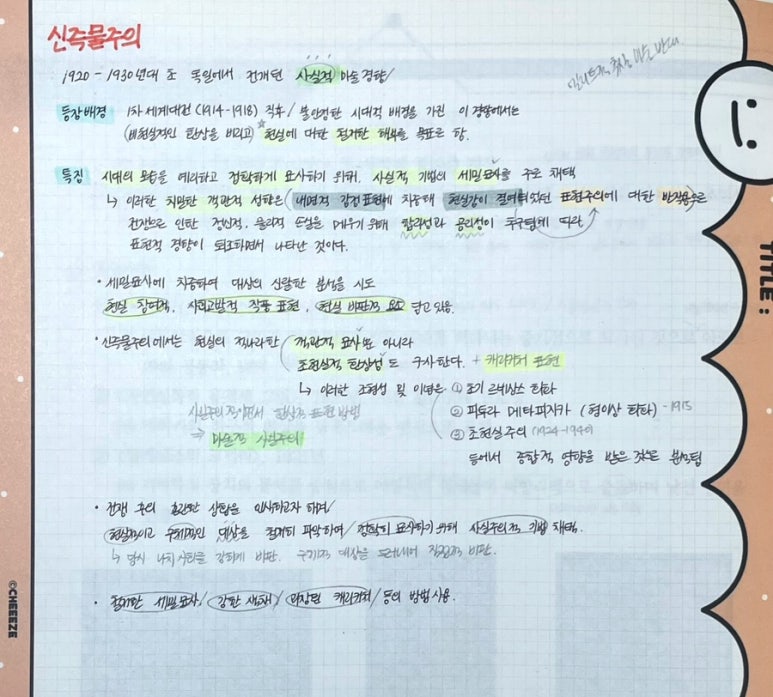 신즉물주의
1920 - 1930년대 초 독일에서 전개된 사실적 미술 경향/
등장배경 1차 세계대전 (1914-1918) 직후/ 불안정한 시대적 배경을 가진 이 경향에서는
(비현실적인 환상을 버리고) 현실에 대한 철저한 해석을 목표로 함.
특징 시대의 모습을 예리하고 정확하게 묘사하기 위해, 사실적 기법의 세밀묘사를 주로 채택
↳ 이러한 치밀한 객관적 성향은 (내면적 감정표현에 치중해 현실감이 결여되었던 표현주의에 대한 반작용으로
전쟁으로 인한 정신적, 물리적 손실을 메우기 위해 합리성과 공리성이 추구됨에 따라
표현적 경향이 퇴조하면서 나타난 것이다.
• 세밀묘사에 치중하여 대상의 신랄한 분석을 시도
현실 참여적, 사회고발적 작품 표현, 현실 비판적 요소 담고 있음.
• 신즉물주의에서는 현실의 적나라한 객관적 묘사뿐 아니라
초현실적 환상성도 구사한다. + 캐리커처 표현
↳ 이러한 조형성 및 이념은 ① 초기 르네상스 회화
사실주의적이면서 환상적 표현 방법
② 피투라 메타피지카 (형이상 회화) - 1915
⇒ 마술적 사실주의
③ 초현실주의 (1924-1940)
등에서 종합적 영향을 받은 것으로 분석됨
• 전쟁 후의 혼란한 상황을 인식하고자 하며/
현실적이고 구체적인 대상을 철저히 파악하여/ 정확히 묘사하기 위해 사실주의적 기법 채택.
↳ 당시 나치 사회를 강하게 비판. 구체적 대상을 드러내어 직접적 비판.
• 철저한 세밀묘사/ 강한 색채/ 과장된 캐리커처/ 등의 방법 사용.
TITLE :
©CHEEEZE